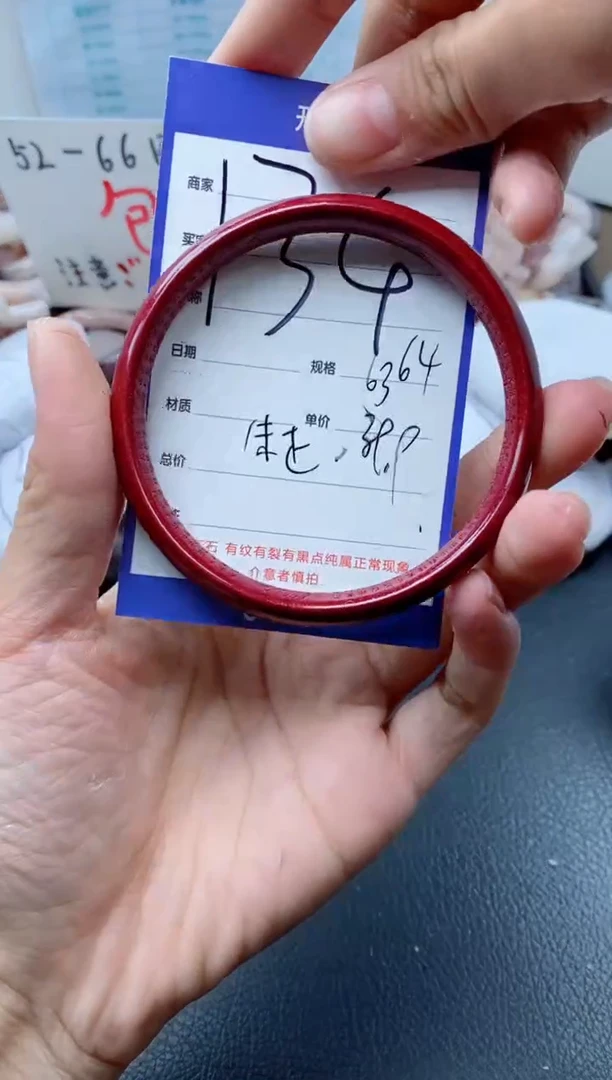 52-66
包
注意!!
134
商家
买
称
日期
规格
63 64
材质
单价
总价
石 有纹有裂有黑点纯属正常现象
介意者慎拍